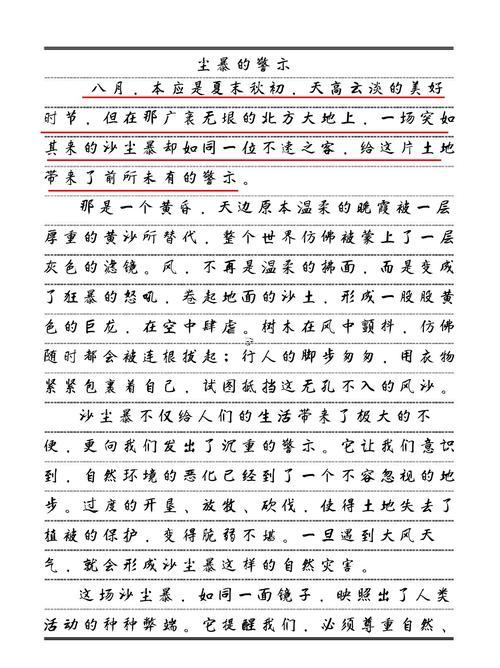 尘暴的警示
八月，本应是夏末秋初，天高云淡的美好
时节，但在那广袤无垠的北方大地上，一场突如
其来的沙尘暴却如同一位不速之客，给这片土地
带来了前所未有的警示。
那是一个黄昏，天边原本温柔的晚霞被一层
厚重的黄沙所替代，整个世界仿佛被蒙上了一层
灰色的滤镜。风，不再是温柔的拂面，而是变成
了狂暴的怒吼，卷起地面的沙土，形成一股股黄
色的巨龙，在空中肆虐。树木在风中颤抖，仿佛
随时都会被连根拔起；行人的脚步匆匆，用衣物
紧紧包裹着自己，试图抵挡这无孔不入的风沙。
沙尘暴不仅给人们的生活带来了极大的不
便，更向我们发出了沉重的警示。它让我们意识
到，自然环境的恶化已经到了一个不容忽视的地
步。过度的开垦、放牧、砍伐，使得土地失去了
植被的保护，变得脆弱不堪。一旦遇到大风天
气，就会形成沙尘暴这样的自然灾害。
这场沙尘暴，如同一面镜子，映照出了人类
活动的种种弊端。它提醒我们，必须尊重自然、